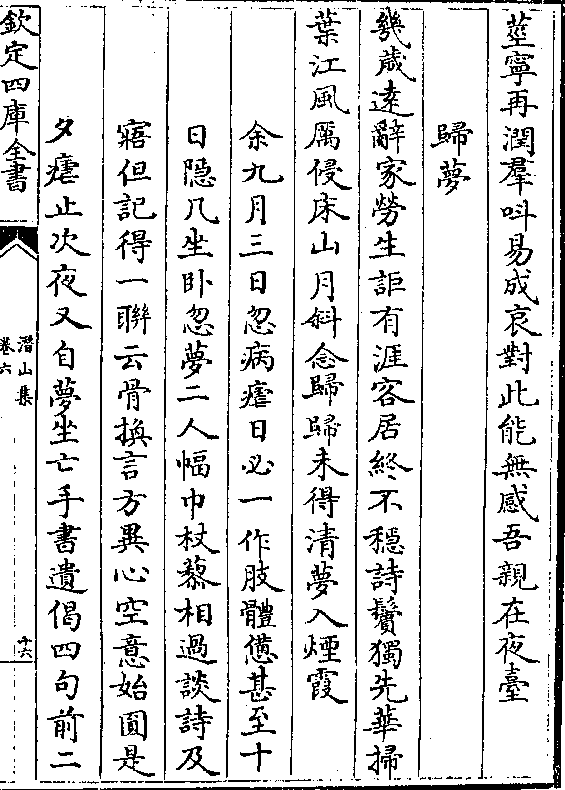 莖寧再潤羣呌易成哀對此能無感吾親在夜臺
歸夢
幾歲逺辭家勞生詎有涯客居終不穩詩鬢獨先華掃
葉江風厲侵床山月斜念歸歸未得清夢入煙霞
余九月三日忽病瘧日必一作肢體憊甚至十
日隠几坐卧忽夢二人幅巾杖藜相過談詩及
寤但記得一聯云骨換言方異心空意始圓是
夕瘧止次夜又自夢坐亡手書遺偈四句前二
欽定四庫全書
潛山集
卷六
十六